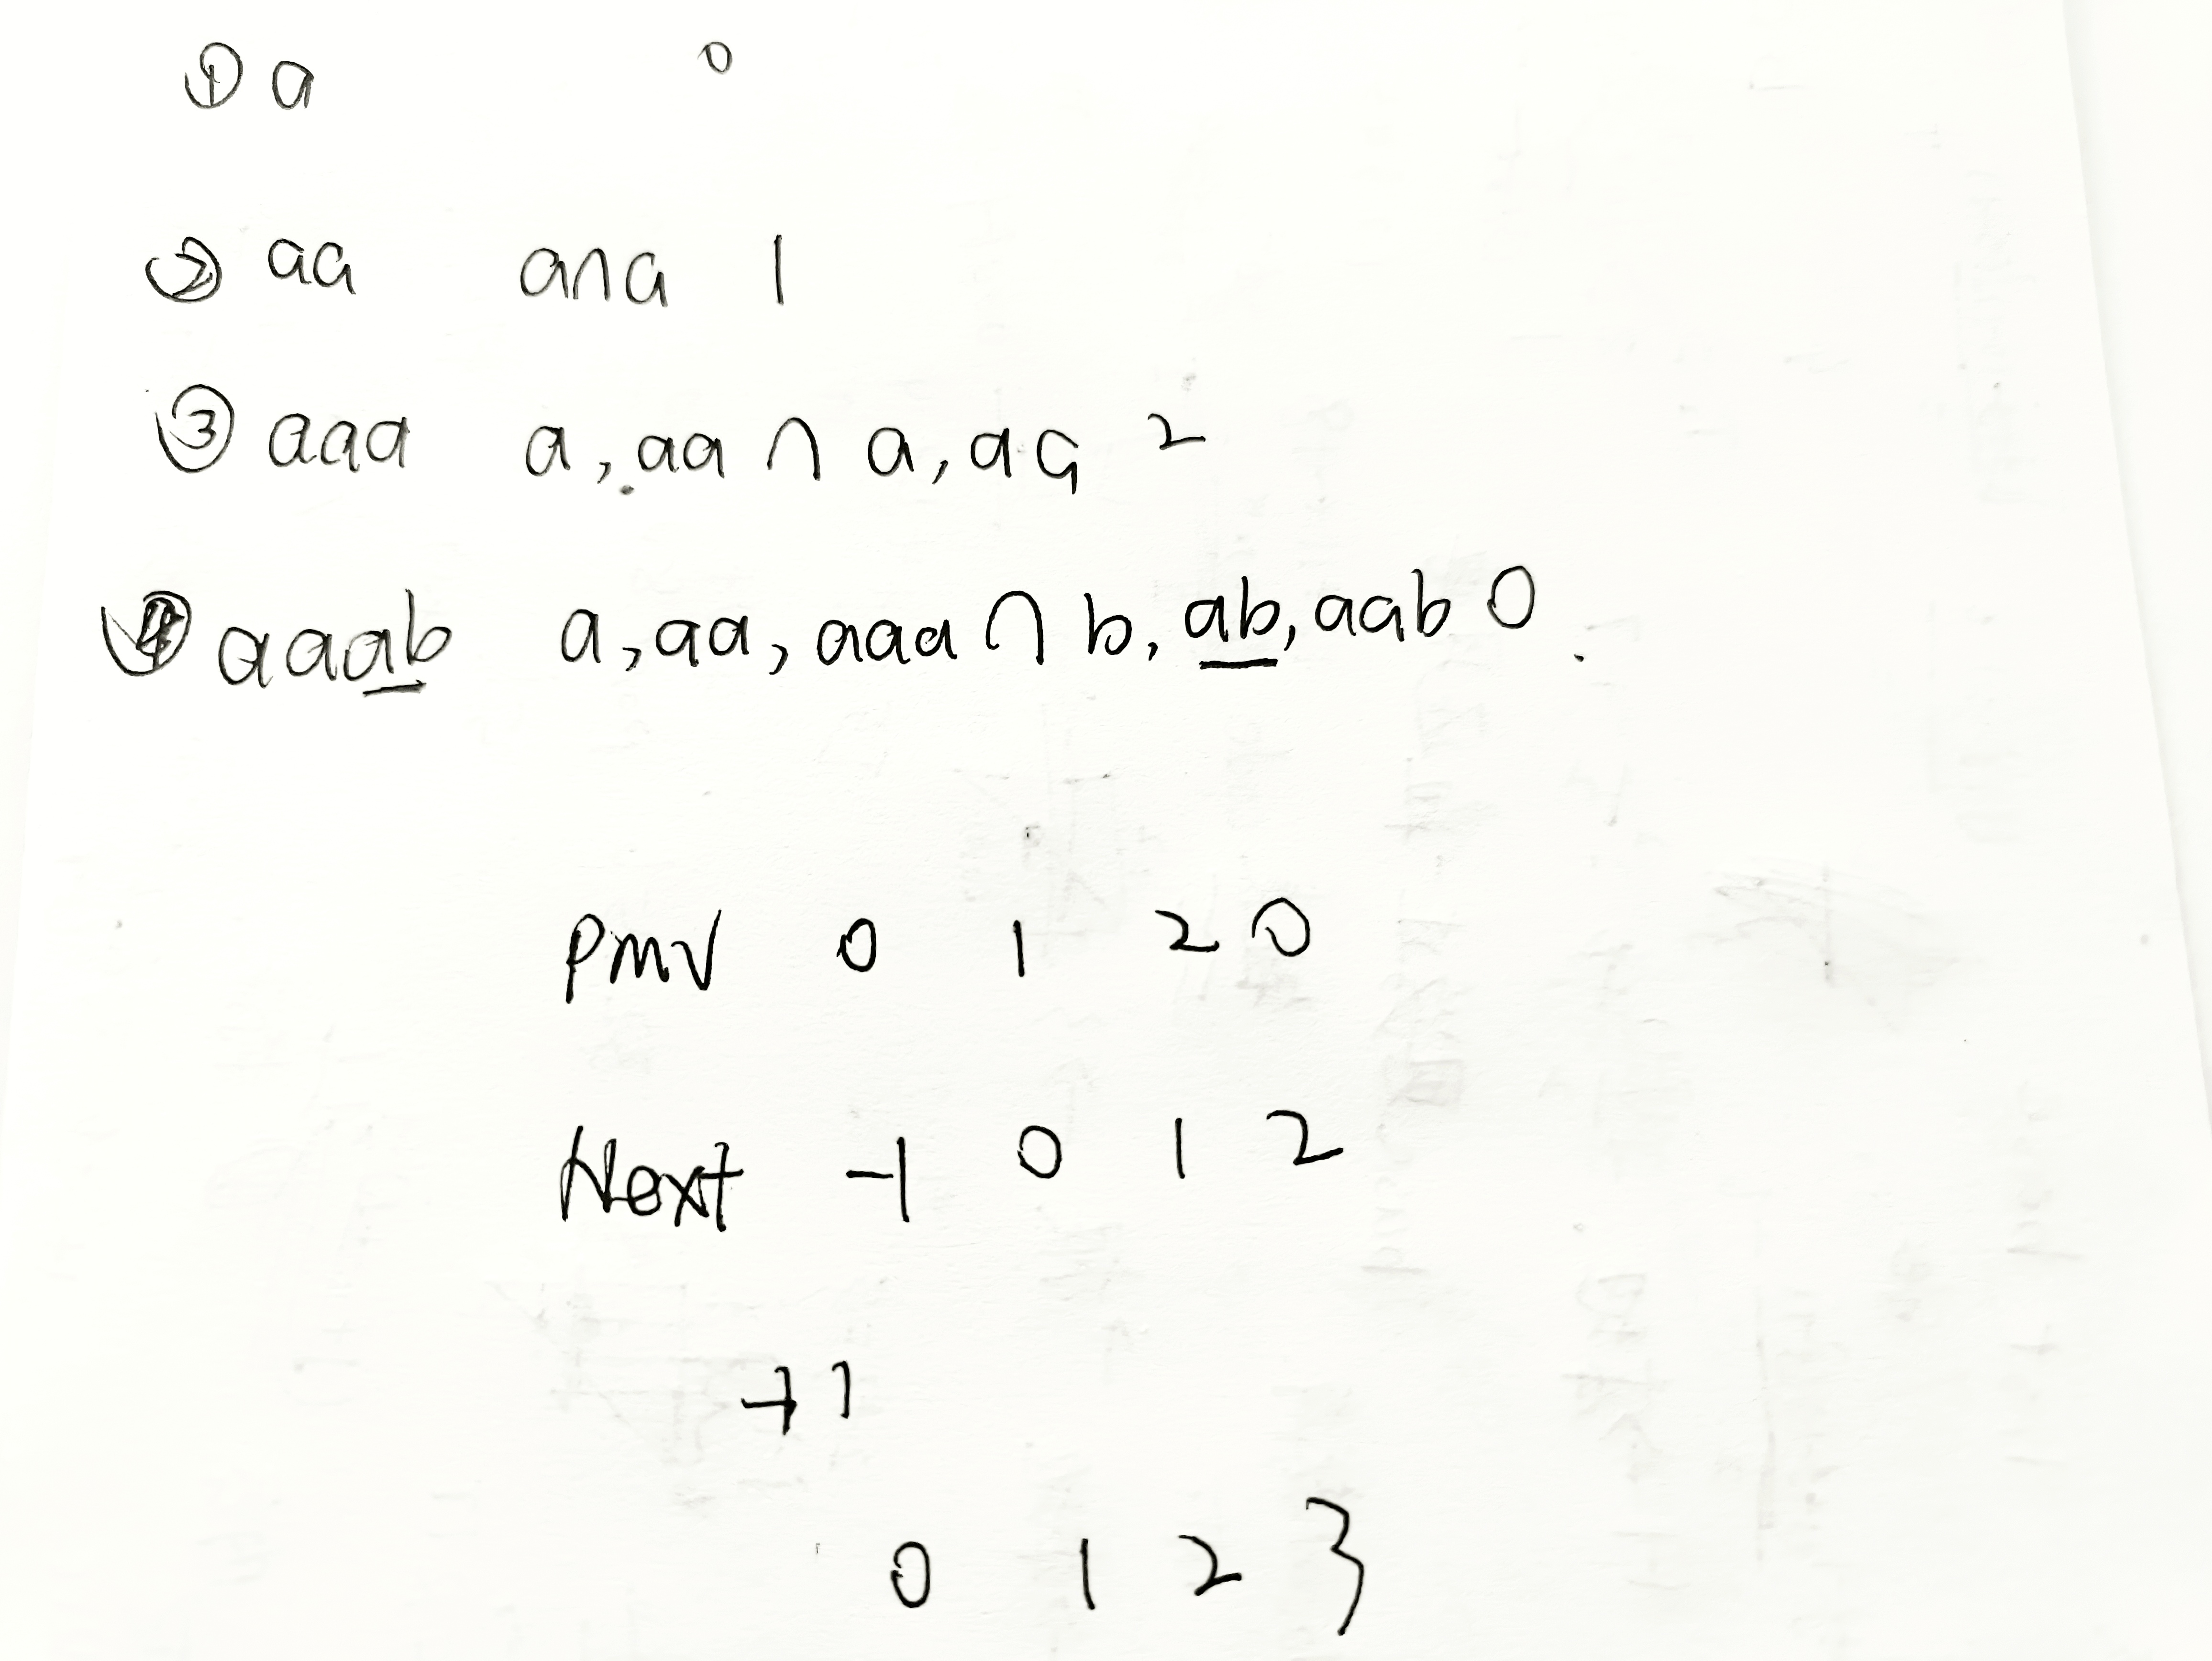 ① a 0
② aa a∩a 1
③ aaa a, aa ∩ a, aa 2
④ aaab a, aa, aaa ∩ b, ab, aab 0
pmv 0 1 2 0
Next -1 0 1 2
+1
0 1 2 3